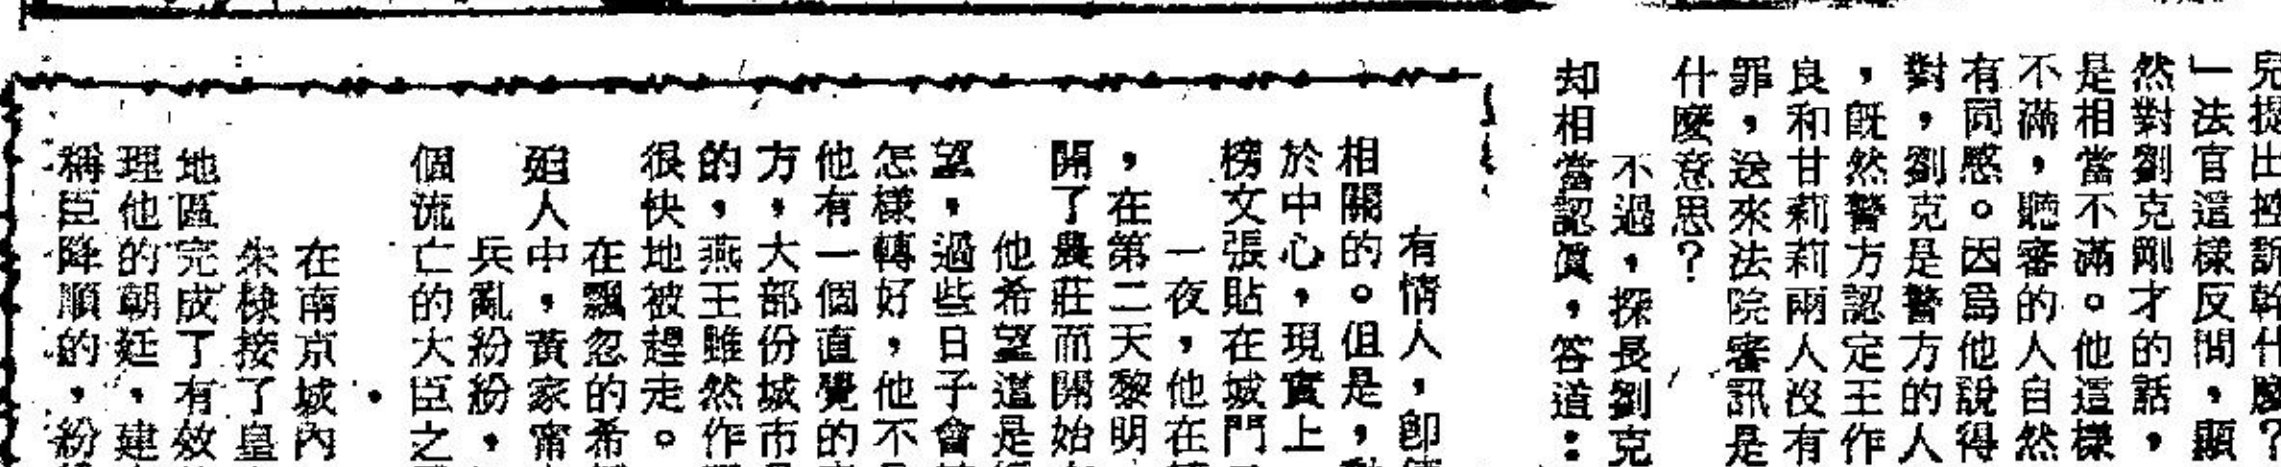 兒提出控訴幹什麼？
」法官這樣反問，顯
然對劉克剛才的話，
是相當不滿。他這樣
不滿，聽審的人自然
有同感。因爲他說得
對，劉克是警方的人
，旣然警方認定王作
良和甘莉莉兩人沒有
罪，送來法院審訊是
什麼意思？
不過，探長劉克
却相當認眞，答道：
有情人，卽
相關的。但是，
於中心，現實上
榜文張貼在城門
一夜，他在
，在第二天黎明
開了農莊而開始
他希望這是
望，過些日子會
怎樣轉好，他不
他有一個直覺的
方，大部份城市
的，燕王雖然作
很快地被趕走。
在飄忽的希
殆人中，黃家甯
兵亂紛紛，
個流亡的大臣之
在南京城內
朱棣接了皇
地區完成了有效
理他的朝廷，建
稱臣降順的，紛